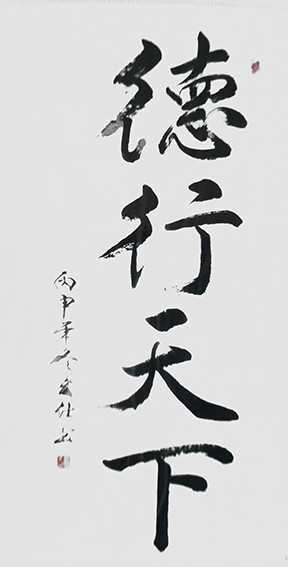 德行天下
丙申年冬